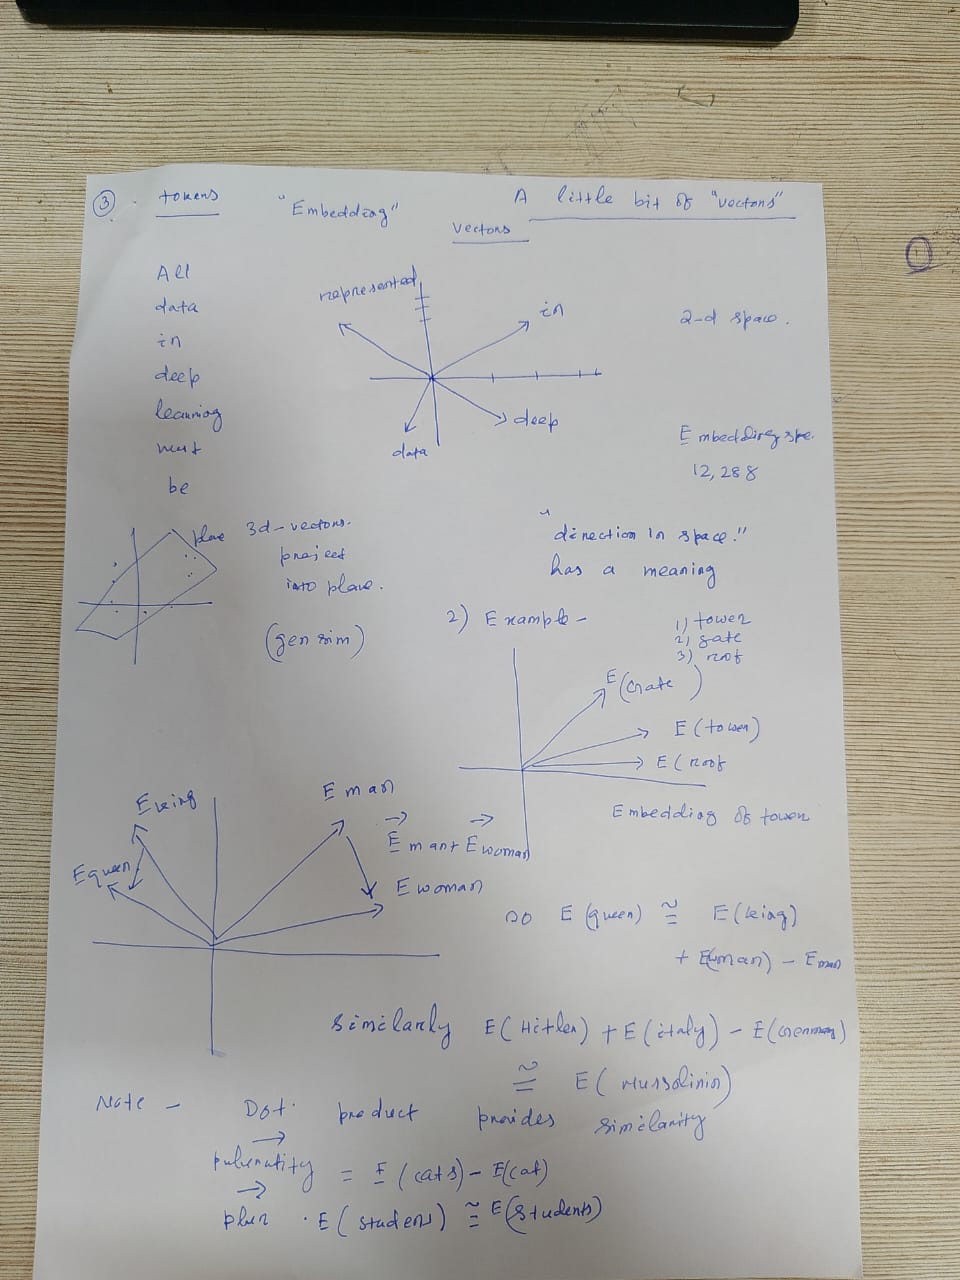 3
tokens
"Embedding"
vectors
A little bit of "vectors"
All
data
in
deep
learning
must
be
represented
in
deep
data
2-d space.
Embedding spe.
12,288
plane
3d-vectors.
project
into plane.
(gensim)
"direction in space."
has a meaning
2) Example -
1) tower
2) gate
3) roof
E(Gate)
E(tower)
E(roof
Embedding of tower
E king
E queen
E man
E man + E woman
E woman
so E(queen) ≅ E(king)
+ E(woman) - E man
similarly E(Hitler) + E(italy) - E(Germany)
≅ E(Mussolini)
Note - Dot product provides similarity
= E(cats) - E(cat)
plur · E(students) ≅ E(students)